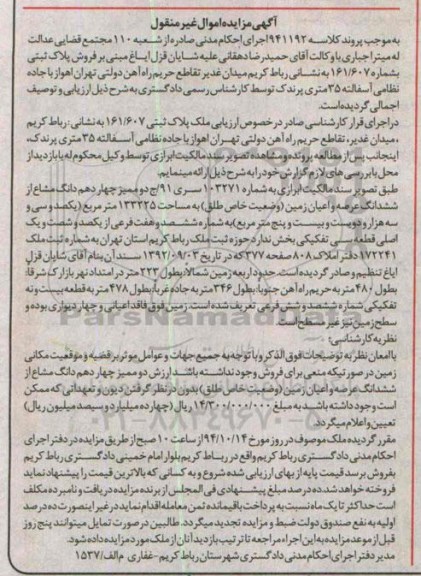 آگهی مزایده اموال غیر منقول
به موجب پرونده کلاسه ۹۴۱۱۹۲ اجرای احکام مدنی صادره از شعبه ۱۱۰ مجتمع قضایی عدالت
له میترا جباری و با وکالت آقای حمیدرضا دهقانی علیه شایان قزل ایاغ مبنی بر فروش پلاک ثبتی
بشماره ۱۶۱/۶۰۷ به نشانی رباط کریم میدان غدیر تقاطع حریم راه آهن دولتی تهران اهواز با جاده
نظامی آسفالته ۳۵ متری پرندک توسط کارشناس رسمی دادگستری به شرح ذیل ارزیابی و توصیف
اجمالی گردیده است.
در اجرای قرار کارشناسی صادر در خصوص ارزیابی ملک پلاک ثبتی ۱۶۱/۶۰۷ به نشانی: رباط کریم
، میدان غدیر، تقاطع حریم راه آهن دولتی تهران اهواز با جاده نظامی آسفالته ۳۵ متری پرندک،
اینجانب پس از مطالعه پرونده و مشاهده تصویر سند مالکیت ابرازی توسط وکیل محکوم له با بازدید از
محل با بررسی های لازم گزارش خود را به شرح ذیل ارائه مینمایم.
طبق تصویر سند مالکیت ابرازی به شماره ۱۰۳۲۷۱ سری ۹۱/ج دو ممیز چهاردهم دانگ مشاع از
ششدانگ عرصه و اعیان زمین (وضعیت خاص طلق) به مساحت ۱۳۳۲۲۵ متر مربع (یکصد و سی و
سه هزار و دویست و بیست و پنج متر مربع) به شماره ششصد و هفت فرعی از یکصد و شصت و یک
اصلی قطعه سی تفکیکی بخش ندارد حوزه ثبت ملک رباط کریم استان تهران به شماره ثبت ملک
۱۷۲۲۴۱ دفتر املاک ۸۰۸ صفحه ۳۷۷ که در تاریخ ۱۳۹۲/۰۹/۰۳ سند آن بنام آقای شایان قزل
ایاغ تنظیم و صادر گردیده است. حدود اربعه زمین شمالا: بطول ۲۲۳ متر در امتداد نهر بازارک شرقا:
بطول ۴۸۰ متر به حریم راه آهن جنوبا: بطول ۳۴۶ متر به جاده غربا: بطول ۴۷۸ متر به قطعه بیست و نه
تفکیکی شماره ششصد و شش فرعی تعریف شده است. زمین فوق فاقد اعیانی و چهار دیواری بوده و
سطح زمین نیز غیر مسطح است
نظریه کارشناسی:
با امعان نظر به توضیحات فوق الذکر و با توجه به جمیع جهات و عوامل موثر بر قضیه و موقعیت مکانی
زمین در صورتیکه منعی برای فروش وجود نداشته باشد ارزش دو ممیز چهاردهم دانگ مشاع از
ششدانگ عرصه و اعیان زمین (وضعیت خاص طلق) بدون در نظر گرفتن دیون و تعهداتی که ممکن
است وجود داشته باشد به مبلغ ۱۴/۳۰۰/۰۰۰/۰۰۰ ریال (چهارده میلیارد و سیصد میلیون ریال)
تعیین و اعلام میگردد.
مقرر گردیده ملک موصوف در روز مورخ ۹۴/۱۰/۱۴ از ساعت ۱۰ صبح از طریق مزایده در دفتر اجرای
احکام مدنی دادگستری رباط کریم واقع در رباط کریم بلوار امام خمینی دادگستری رباط کریم
بفروش برسد قیمت پایه از بهای ارزیابی شده شروع و به کسانی که بالاترین قیمت را پیشنهاد نماید
فروخته خواهد شد ده درصد مبلغ پیشنهادی فی المجلس از برنده مزایده دریافت و نامبرده مکلف
است حداکثر تا یک ماه نسبت به پرداخت باقیمانده ثمن معامله اقدام نماید در غیر اینصورت ده درصد
اولیه به نفع صندوق دولت ضبط و مزایده تجدید میگردد. طالبین در صورت تمایل میتوانند پنج روز
قبل از موعد مزایده به این اجرا مراجعه تا ترتیب بازدید آنان از ملک مورد مزایده داده شود.
مدیر دفتر اجرای احکام مدنی دادگستری شهرستان رباط کریم - غفاری م الف/۱۵۳۷
ParsNamadData
۰۲۱-۸۸۳۴۹۶۷۰-۵